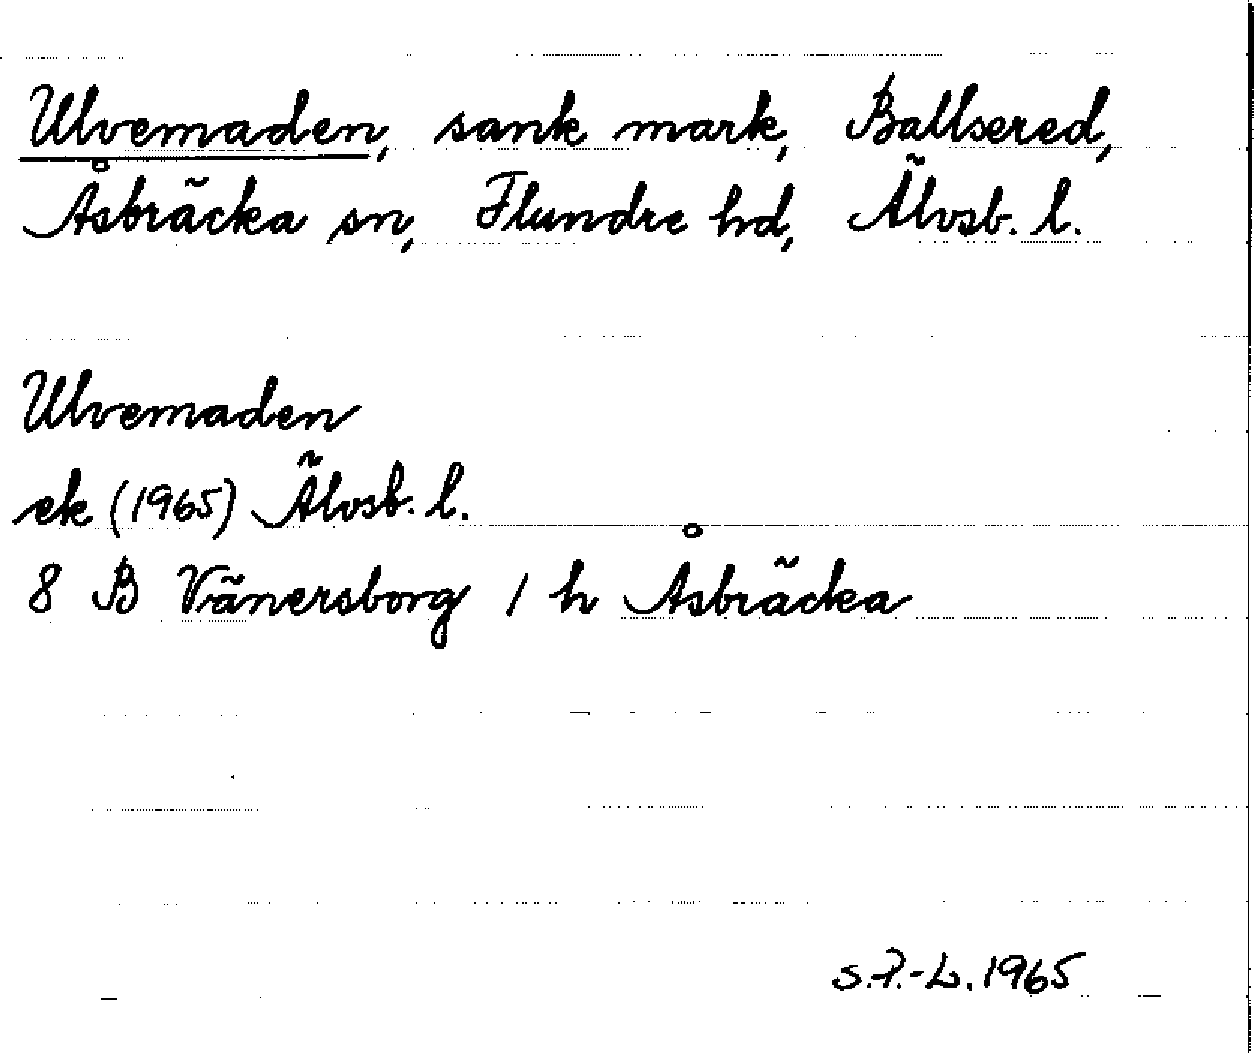 Ulvemaden, sank mark, Ballsered,
Åsbräcka sn, Flundre hd, Älvsb. l.
Ulvemaden
ek (1965) Älvsb. l.
8 B Vänersborg 1 h Åsbräcka
S.P.-L. 1965